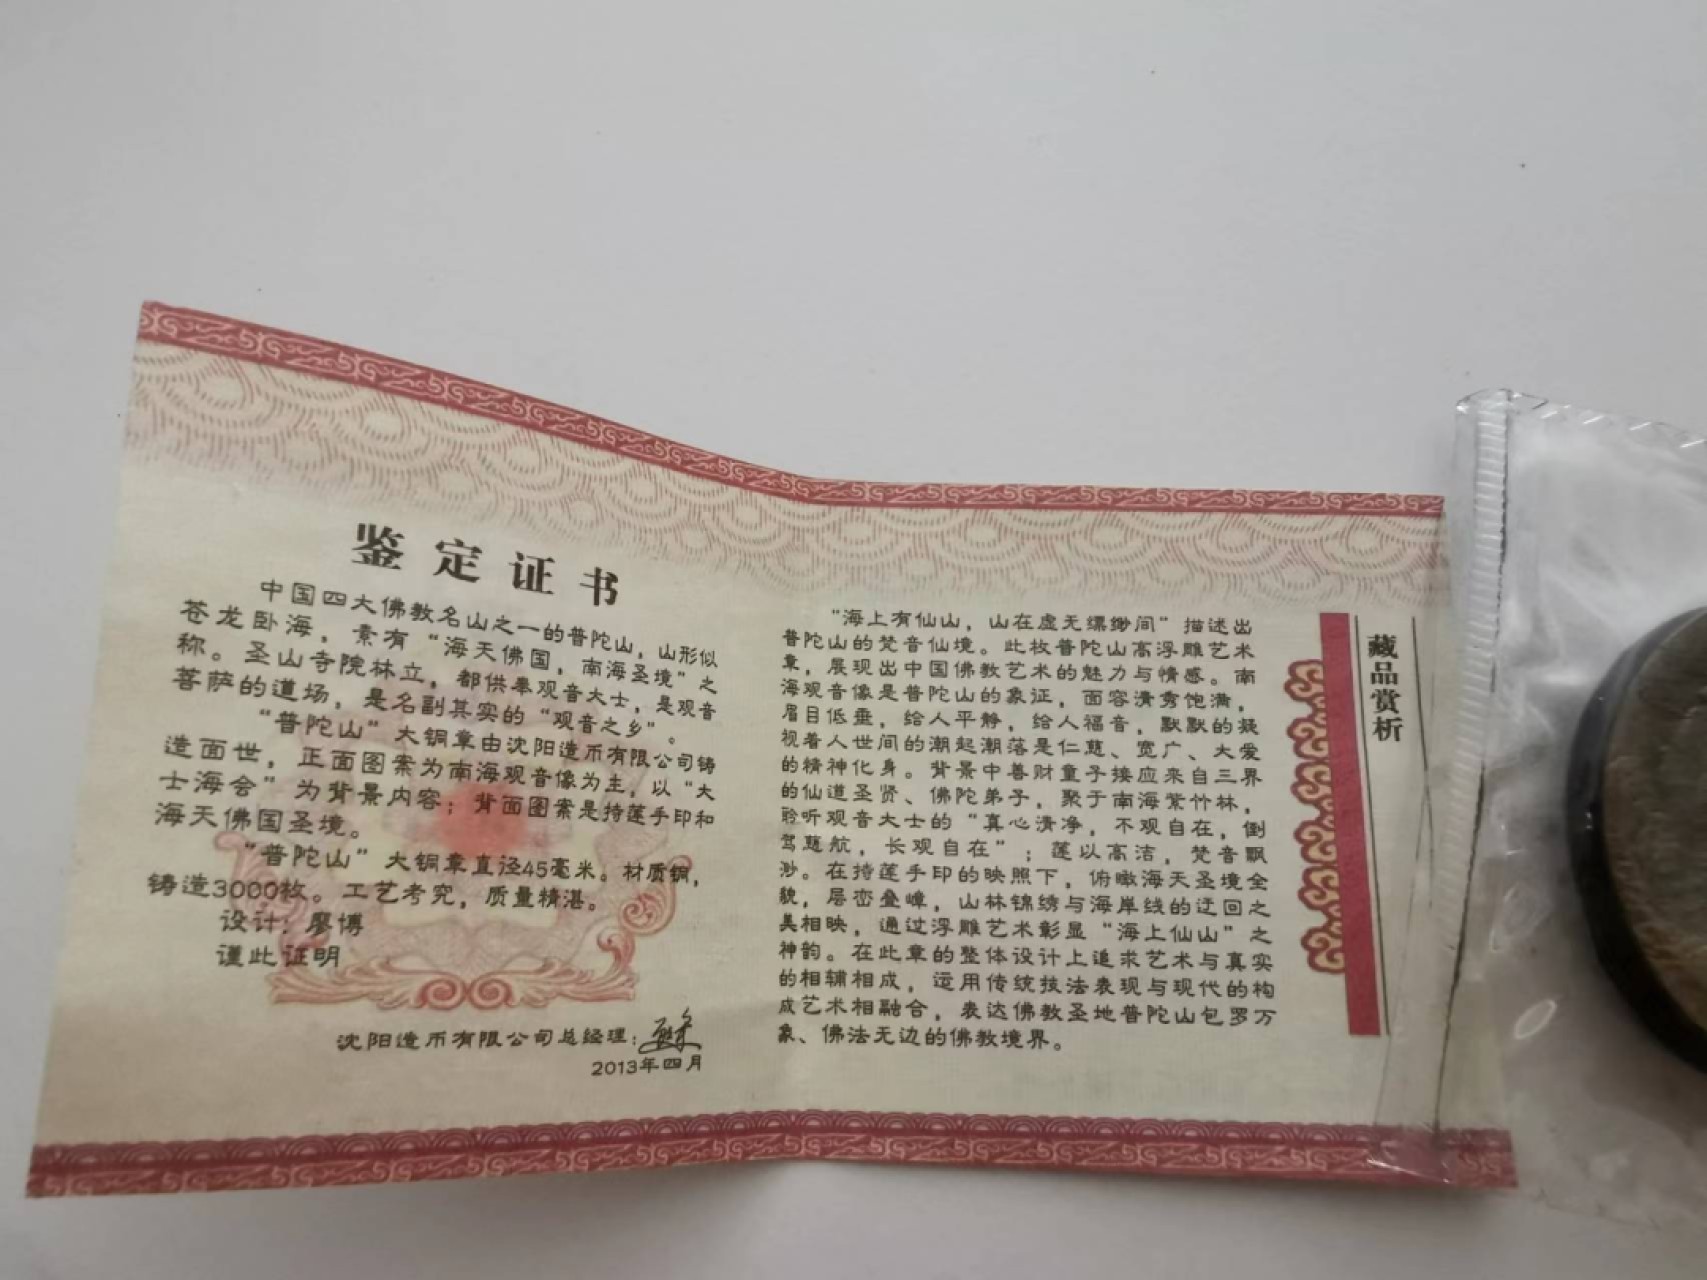 鉴定证书
中国四大佛教名山之一的普陀山，山形似
苍龙卧海，素有“海天佛国，南海圣境”之
称。圣山寺院林立，都供奉观音大士，是观音
菩萨的道场，是名副其实的“观音之乡”。
“普陀山”大铜章由沈阳造币有限公司铸
造面世，正面图案为南海观音像为主，以“大
士海会”为背景内容；背面图案是持莲手印和
海天佛国圣境。
“普陀山”大铜章直径45毫米。材质铜，
铸造3000枚。工艺考究，质量精湛。
设计：廖博
谨此证明
沈阳造币有限公司总经理：
2013年四月
藏品赏析
“海上有仙山，山在虚无缥缈间”描述出
普陀山的梵音仙境。此枚普陀山高浮雕艺术
章，展现出中国佛教艺术的魅力与情感。南
海观音像是普陀山的象证，面容清秀饱满，
眉目低垂，给人平静，给人福音，默默的凝
视着人世间的潮起潮落是仁慈、宽广、大爱
的精神化身。背景中善财童子接应来自三界
的仙道圣贤、佛陀弟子，聚于南海紫竹林，
聆听观音大士的“真心清净，不观自在，倒
驾慈航，长观自在”；莲以高洁，梵音飘
渺。在持莲手印的映照下，俯瞰海天圣境全
貌，层峦叠嶂，山林锦绣与海岸线的迂回之
美相映，通过浮雕艺术彰显“海上仙山”之
神韵。在此章的整体设计上追求艺术与真实
的相辅相成，运用传统技法表现与现代的构
成艺术相融合，表达佛教圣地普陀山包罗万
象、佛法无边的佛教境界。